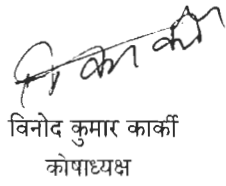 विनोद कुमार कार्की
कोषाध्यक्ष